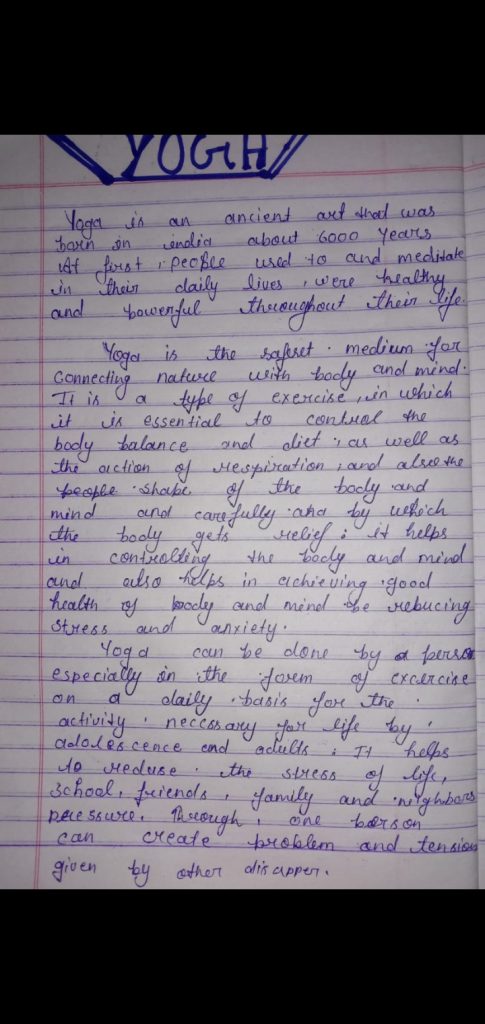 YOGA
Yoga is an ancient art that was
born in india about 6000 years
At first, people used to and meditate
in their daily lives, were healthy
and powerful throughout their life.
Yoga is the safeset. medium for
connecting nature with body and mind.
It is a type of exercise, in which
it is essential to control the
body balance and diet, as well as
the action of respiration, and also the
people shape of the body and
mind and carefully and by which
the body gets relief; it helps
in controlling the body and mind
and also helps in achieving good
health of body and mind be rebucing
stress and anxiety.
Yoga can be done by a person
especially in the form of excercise
on a daily basis for the
activity. necessary for life by
adolescence end adults. It helps
to reduse the stress of life,
school, friends, family and neighbors
peressure. Through, one berson
can create problem and tension
given by other disapper.